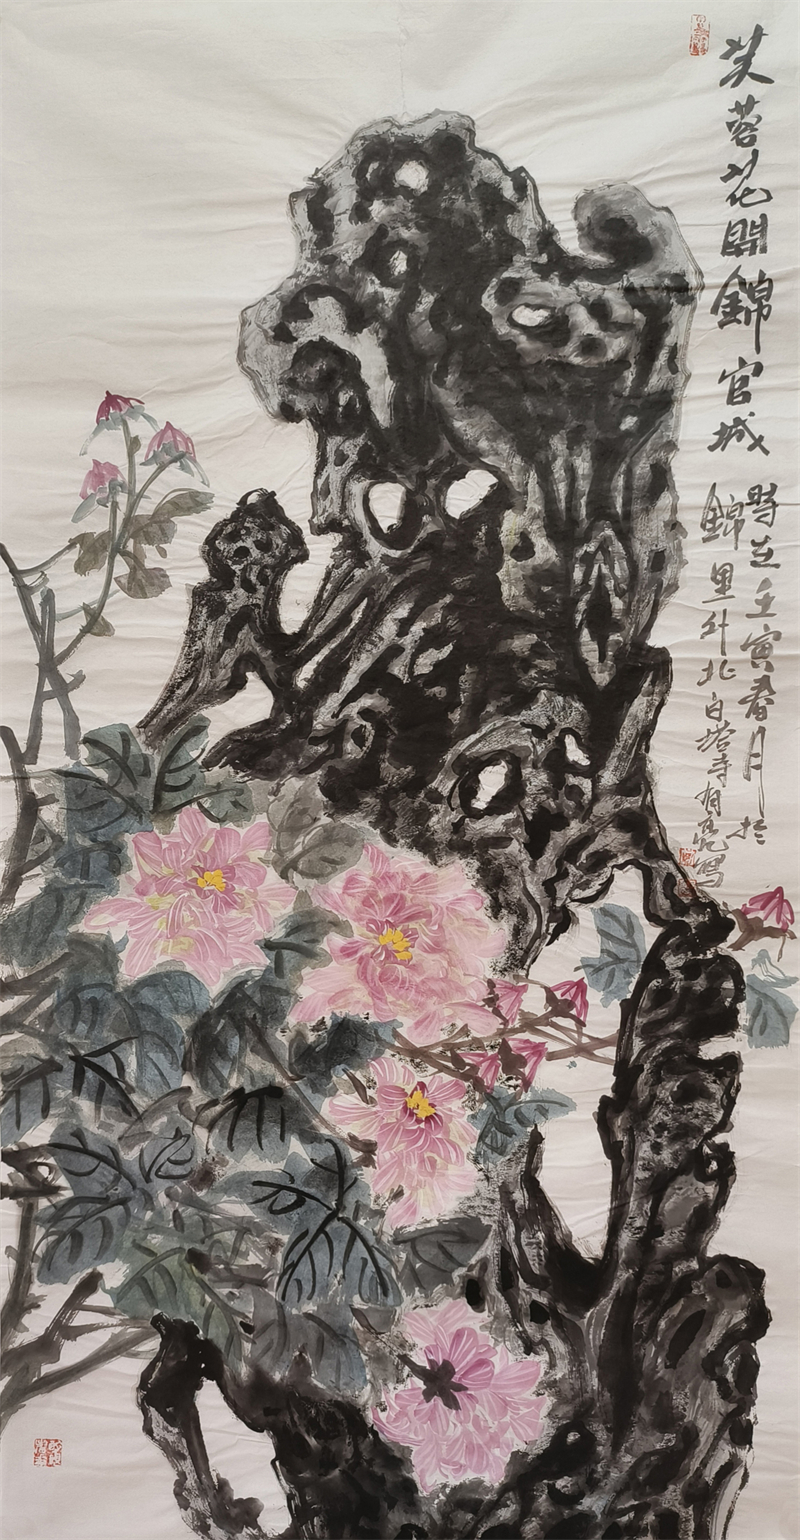 芙蓉花開錦官城
時在壬寅春月於
錦里外北白塔寺有亮寫